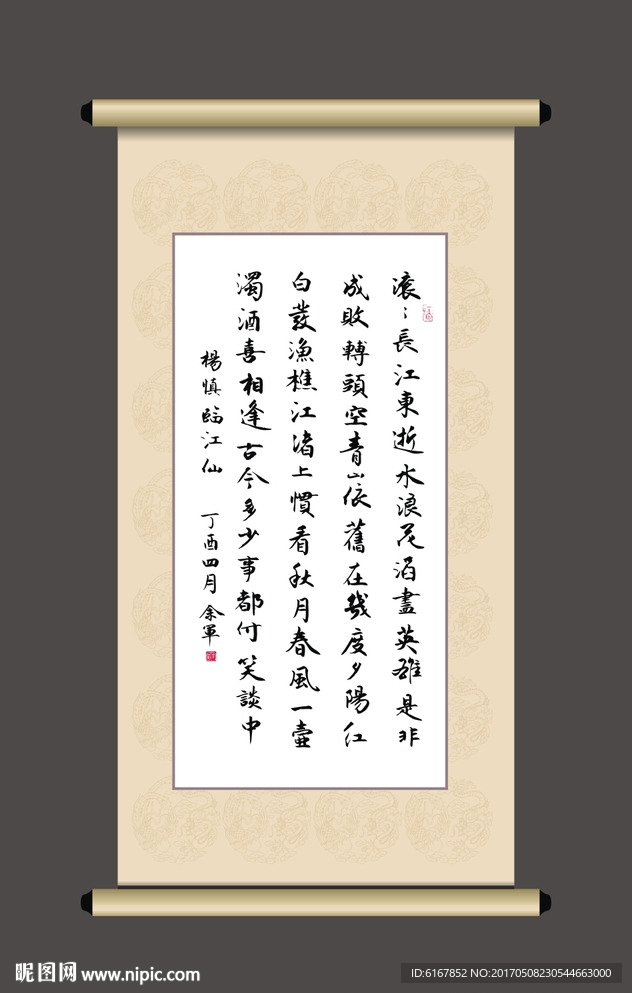 滚〻長江東逝水浪花淘盡英雄是非
成敗轉頭空青山依舊在幾度夕陽紅
白發漁樵江渚上慣看秋月春風一壺
濁酒喜相逢古今多少事都付笑談中
楊慎臨江仙 丁酉四月 余軍
昵图网 www.nipic.com
ID:6167852 NO:20170508230544663000